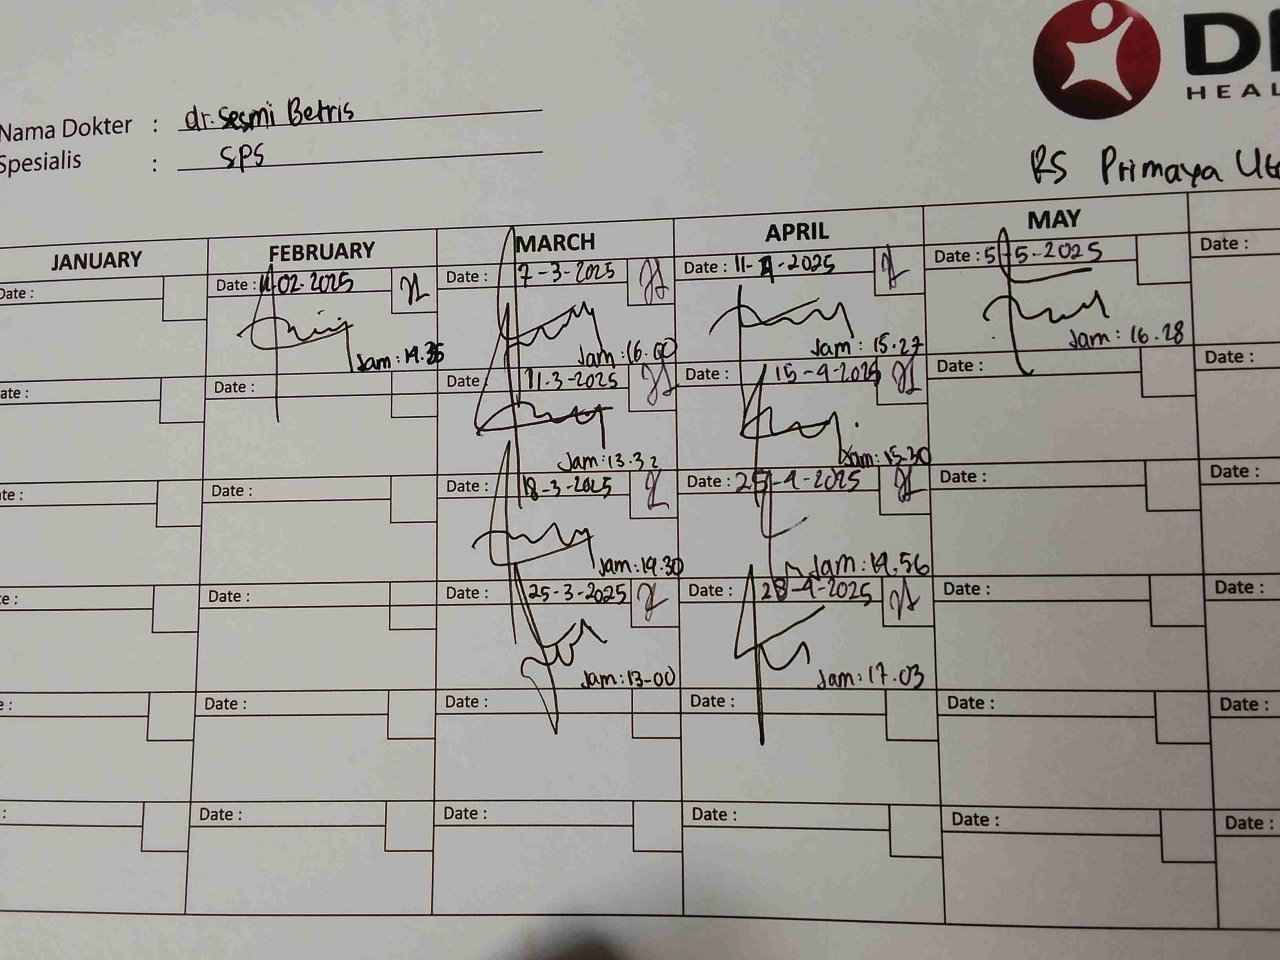 Nama Dokter : dr. Sesmi Betris
Spesialis : SPS
HEAL
RS Primaya
JANUARY FEBRUARY MARCH APRIL MAY
Date : Date : 02-2025 Date : 7-3-2025 Date : 11-4-2025 Date : 5-5-2025 Date :
Jam : 16.00 Jam : 15.27 Jam : 16.28
Date : Date : Date : 11-3-2025 Date : 15-4-2025 Date : Date :
Jam : 13.32 Jam : 15.30
Date : Date : 18-3-2025 Date : 25-4-2025 Date : Date :
Jam : 14.30 Jam : 14.56
Date : Date : 25-3-2025 Date : 28-4-2025 Date : Date :
Jam : 13-00 Jam : 17.03
Date : Date : Date : Date : Date :
Date : Date : Date : Date : Date :